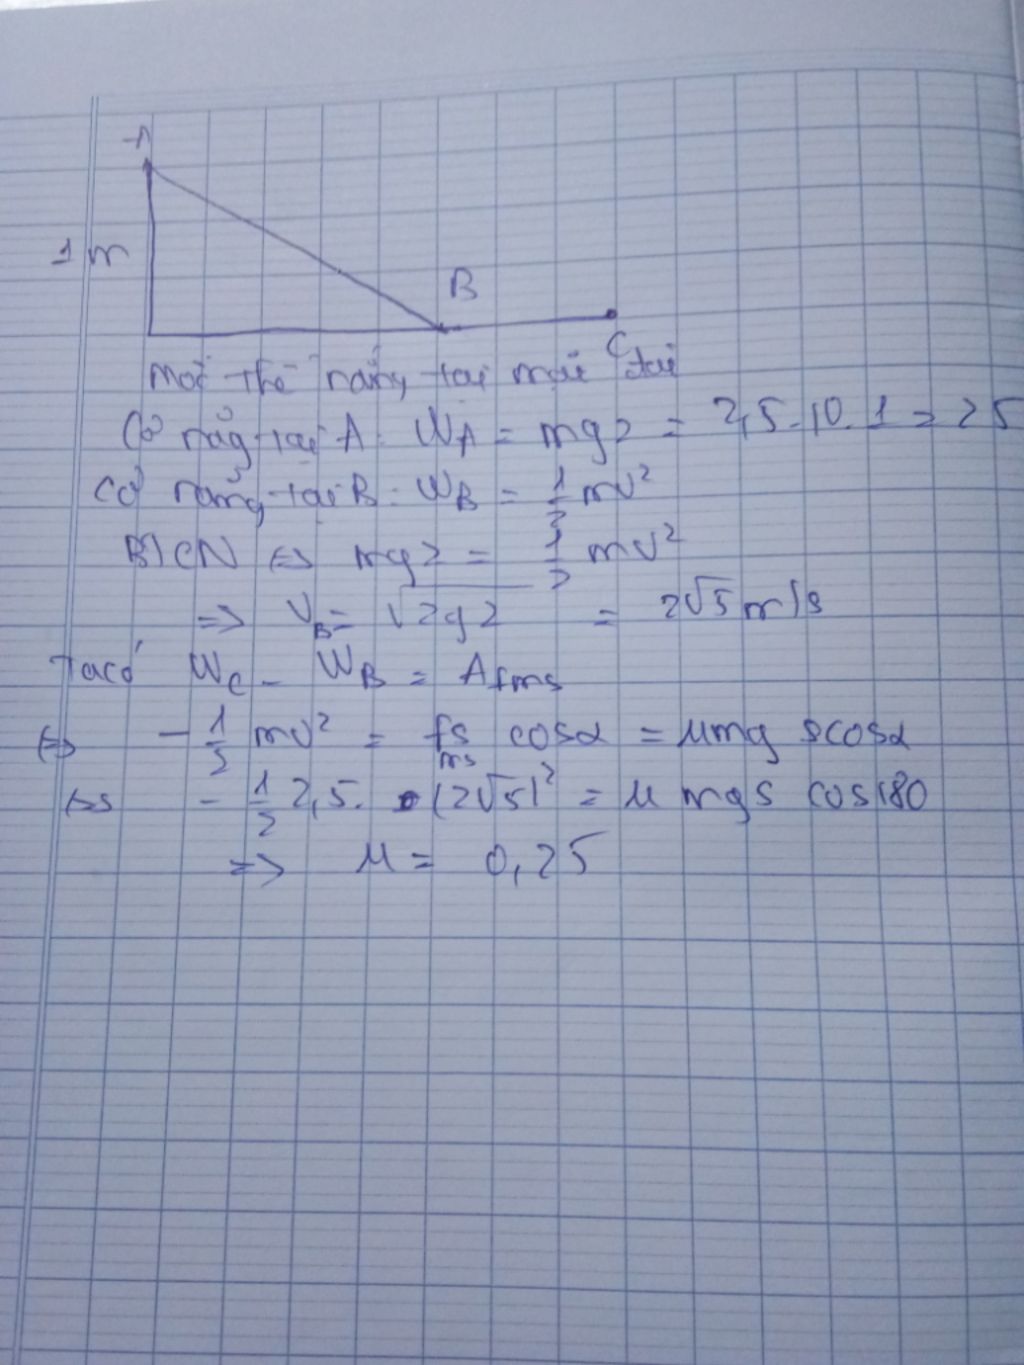 A
1m
B
C
Mốc thế năng tại mặt đất
Cơ năng tại A: WA = mgz = 2,5.10.1 = 25
Cơ năng tại B: WB = 1/2 mv²
BTCN ⇔ mgz = 1/2 mv²
=> VB = √2gz = 2√5 m/s
Ta có WC - WB = Afms
⇔ - 1/2 mv² = fms s cosα = μmg s cosα
⇔ - 1/2 2,5. (2√5)² = μ mgs cos180
=> μ = 0,25